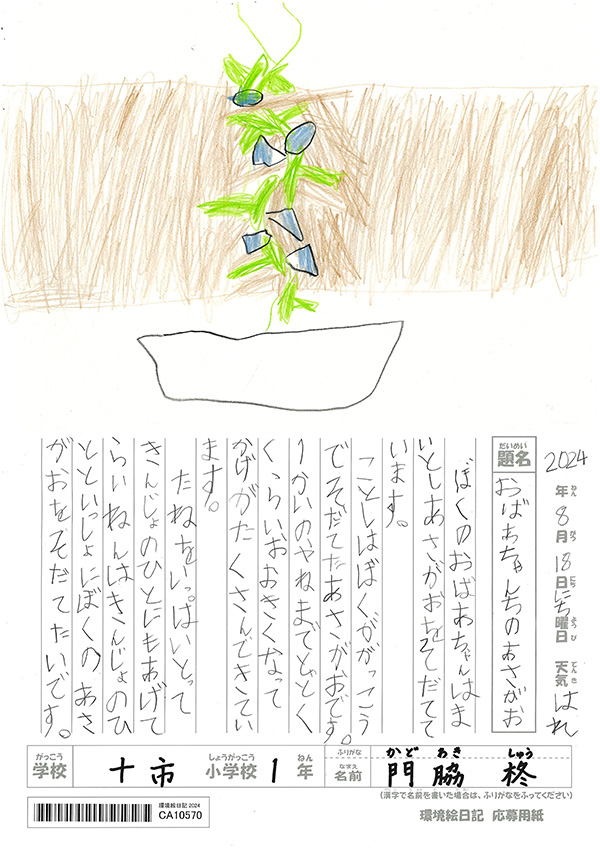 2024年8月18日にち曜日 天気はれ
ねん がつ にち ようび てんき
だいめい
題名
おばあちゃんちのあさがお
ぼくのおばあちゃんはま
いとしあさがおをそだてて
います。
ことしはぼくががっこう
でそだてたあさがおです。
1かいのやねまでとどく
くらいおおきくなって
かげがたくさんできてい
ます。
たねをいっぱいとって
きんじょのひとにもあげて
らいねんはきんじょのひ
とといっしょにぼくのあさ
がおをそだてたいです。
がっこう しょうがっこう ねん ふりがな かど わき しゅう
学校 十市 小学校 1年 なまえ 名前 門脇 柊
(漢字で名前を書いた場合は、ふりがなをふってください)
環境絵日記 2024
CA10570
環境絵日記 応募用紙